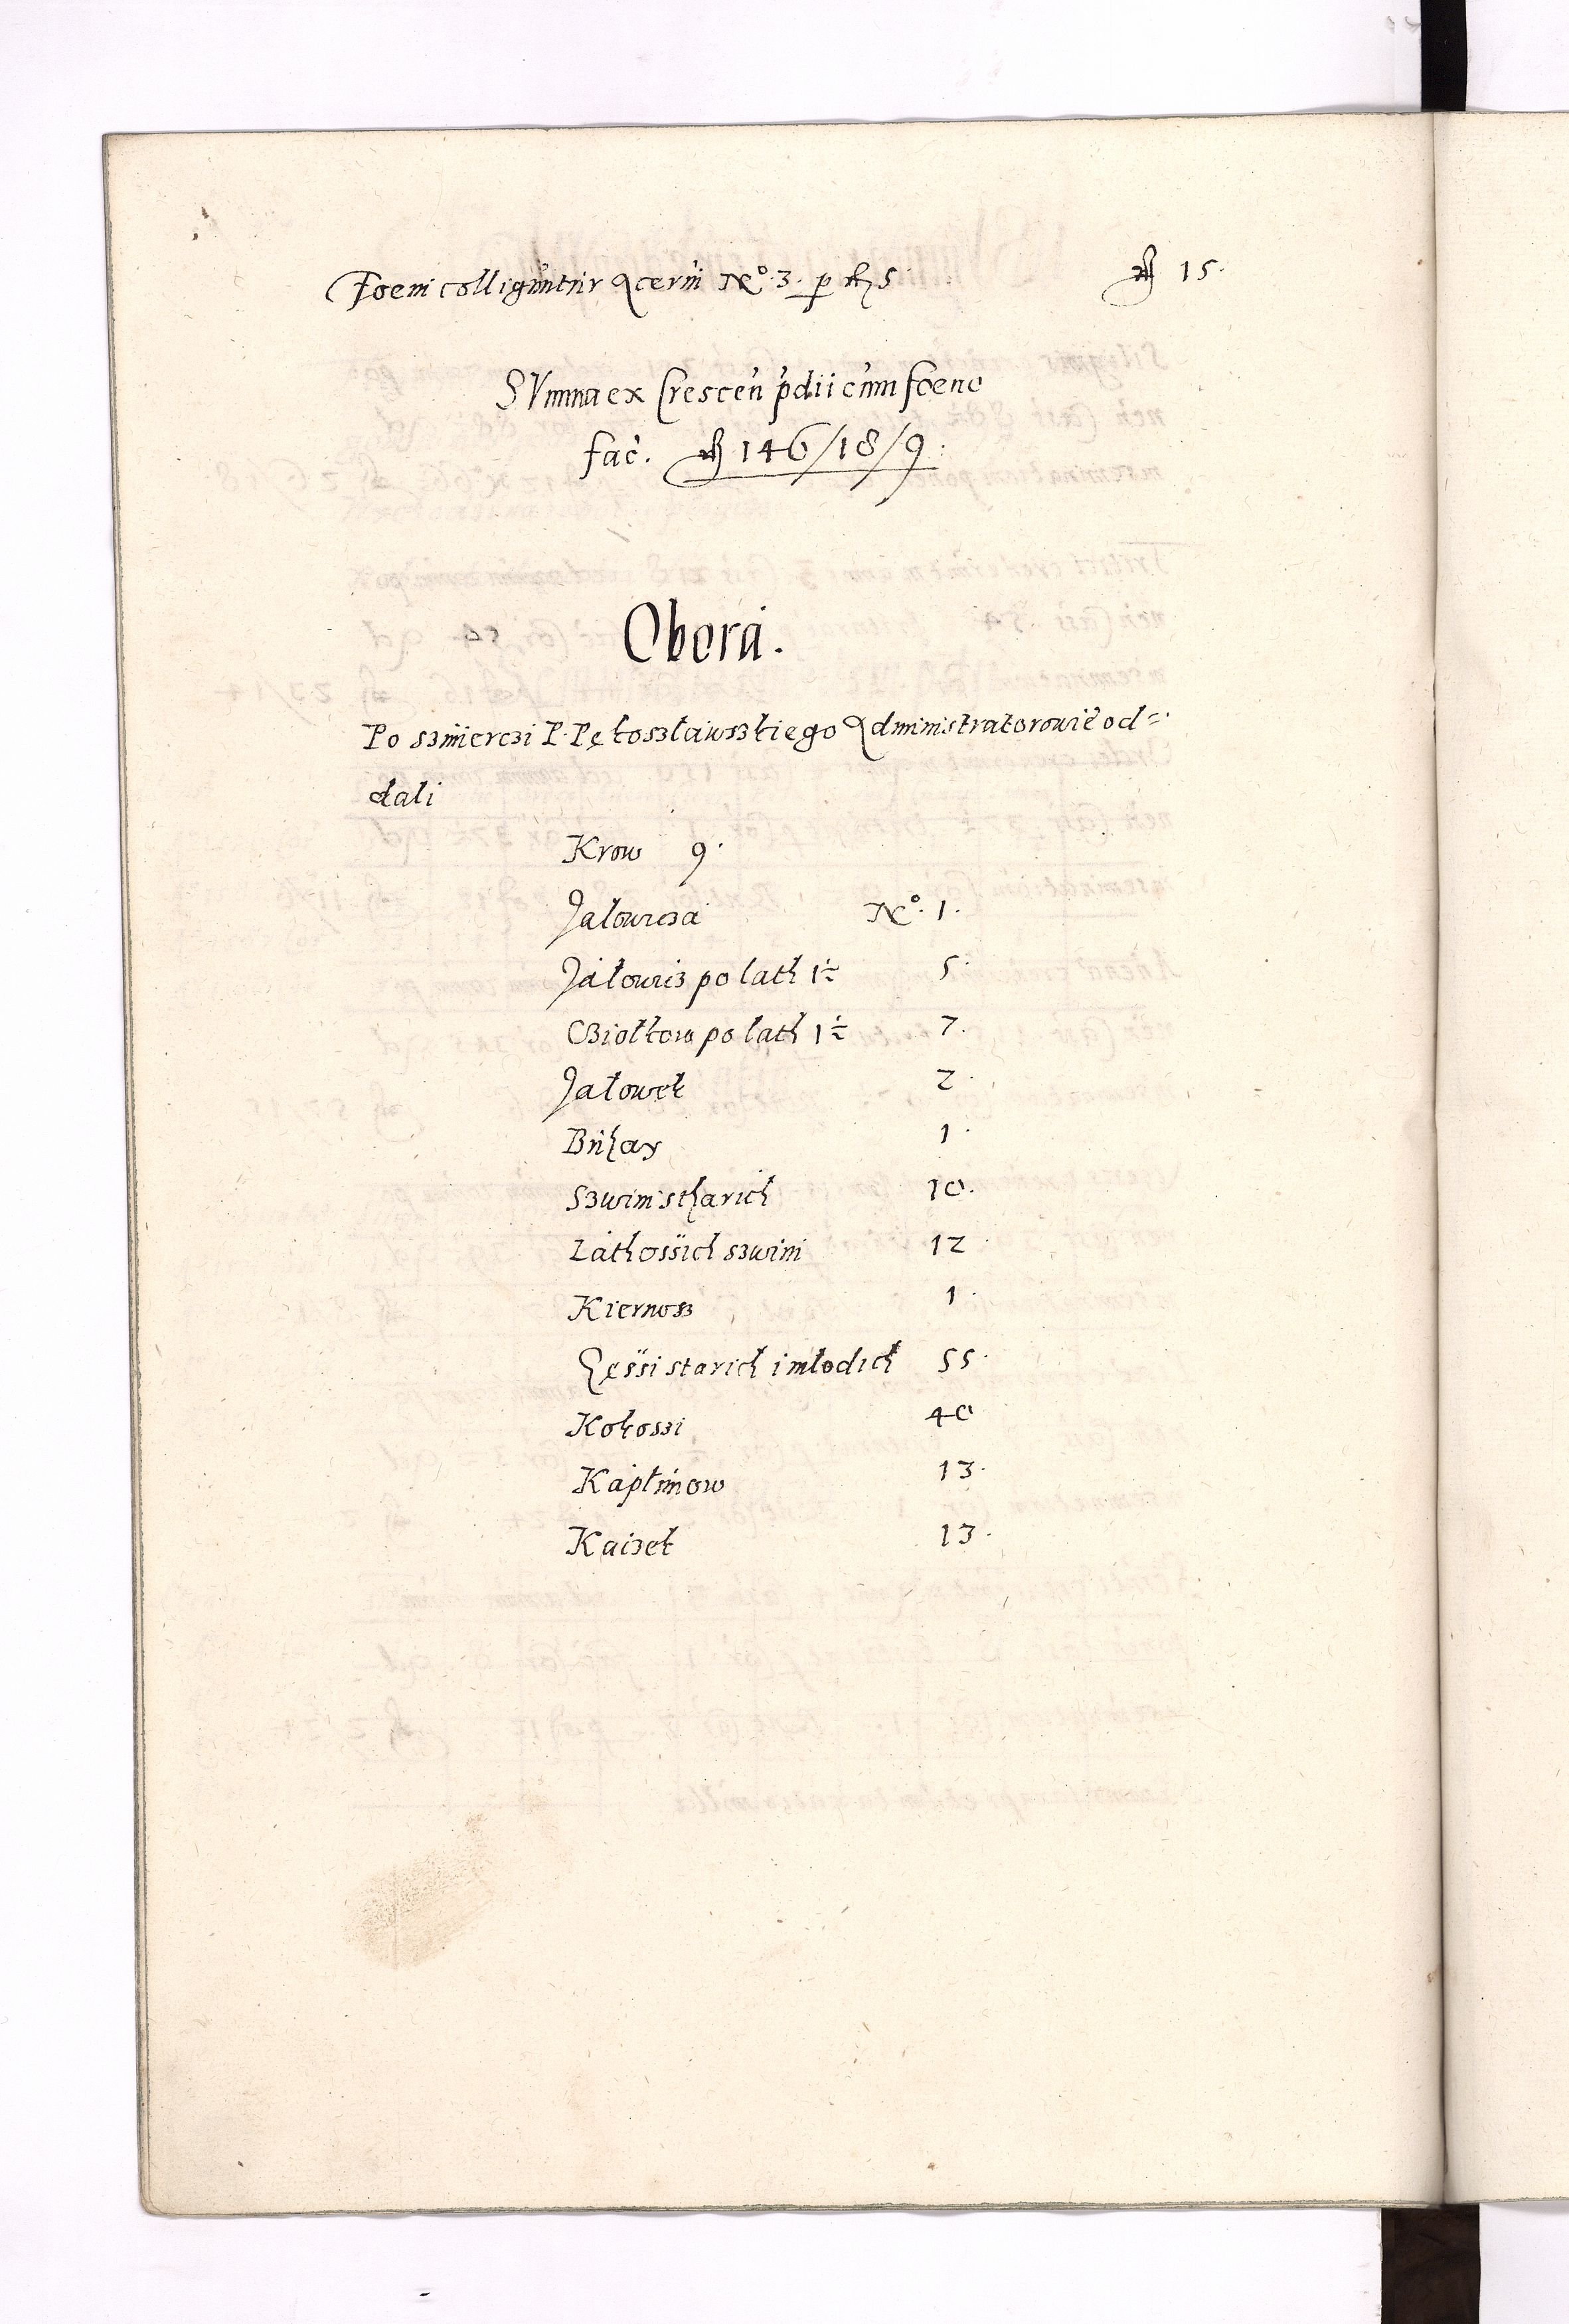 Foeni colliguntur acerui No. 3. p fl 5 fl 15.
Summa ex Crescen pdii cum foeno
fac. fl 146/18/9.
Oborá.
Po szmierczi P. Pękoszławszkiego Administratorowie od=
dali
Krow 9.
Jałowicza No. 1.
Jałowicz po lath 1½ 5.
Cziołkow po lath 1½ 7.
Jałowek 2.
Buhay 1.
Szwini stharich 10.
Láthossich szwini 12
Kiernosz 1.
Gęssi starich i młodich 55.
Kokoszi 40
Kapłunow 13.
Kaczek 13.